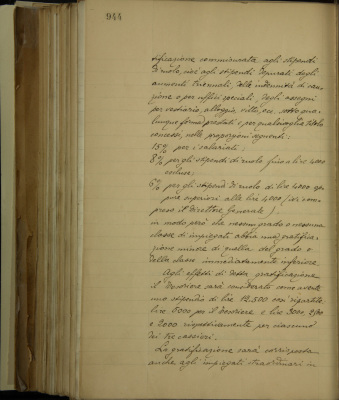 944
tificazione commisurata agli stipendi
di ruolo, cioè agli stipendi depurati degli
aumenti triennali, delle indennità di cau-
zione o per uffici speciali, degli assegni
per vestiario, alloggio, vitto, ecc. sotto qua-
lunque forma prestati e per qualsivoglia titolo
concessi, nelle proporzioni seguenti:
15% per i salariati;
8% per gli stipendi di ruolo fino a lire 4000
escluse;
6% per gli stipendi di ruolo di lire 4000 op-
pure superiori alle lire 4000 (ivi com-
preso il Direttore Generale)
in modo però che nessun grado e nessuna
classe di impiegati abbia una gratifica-
zione minore di quella del grado e
della classe immediatamente inferiore.
Agli effetti di detta gratificazione
il Tesoriere sarà considerato come avente
uno stipendio di lire 12.500 così ripartite
lire 5000 per il Tesoriere e lire 3000, 2500
e 2000 rispettivamente per ciascuno
dei tre cassieri.
La gratificazione sarà corrisposta
anche agli impiegati straordinari in